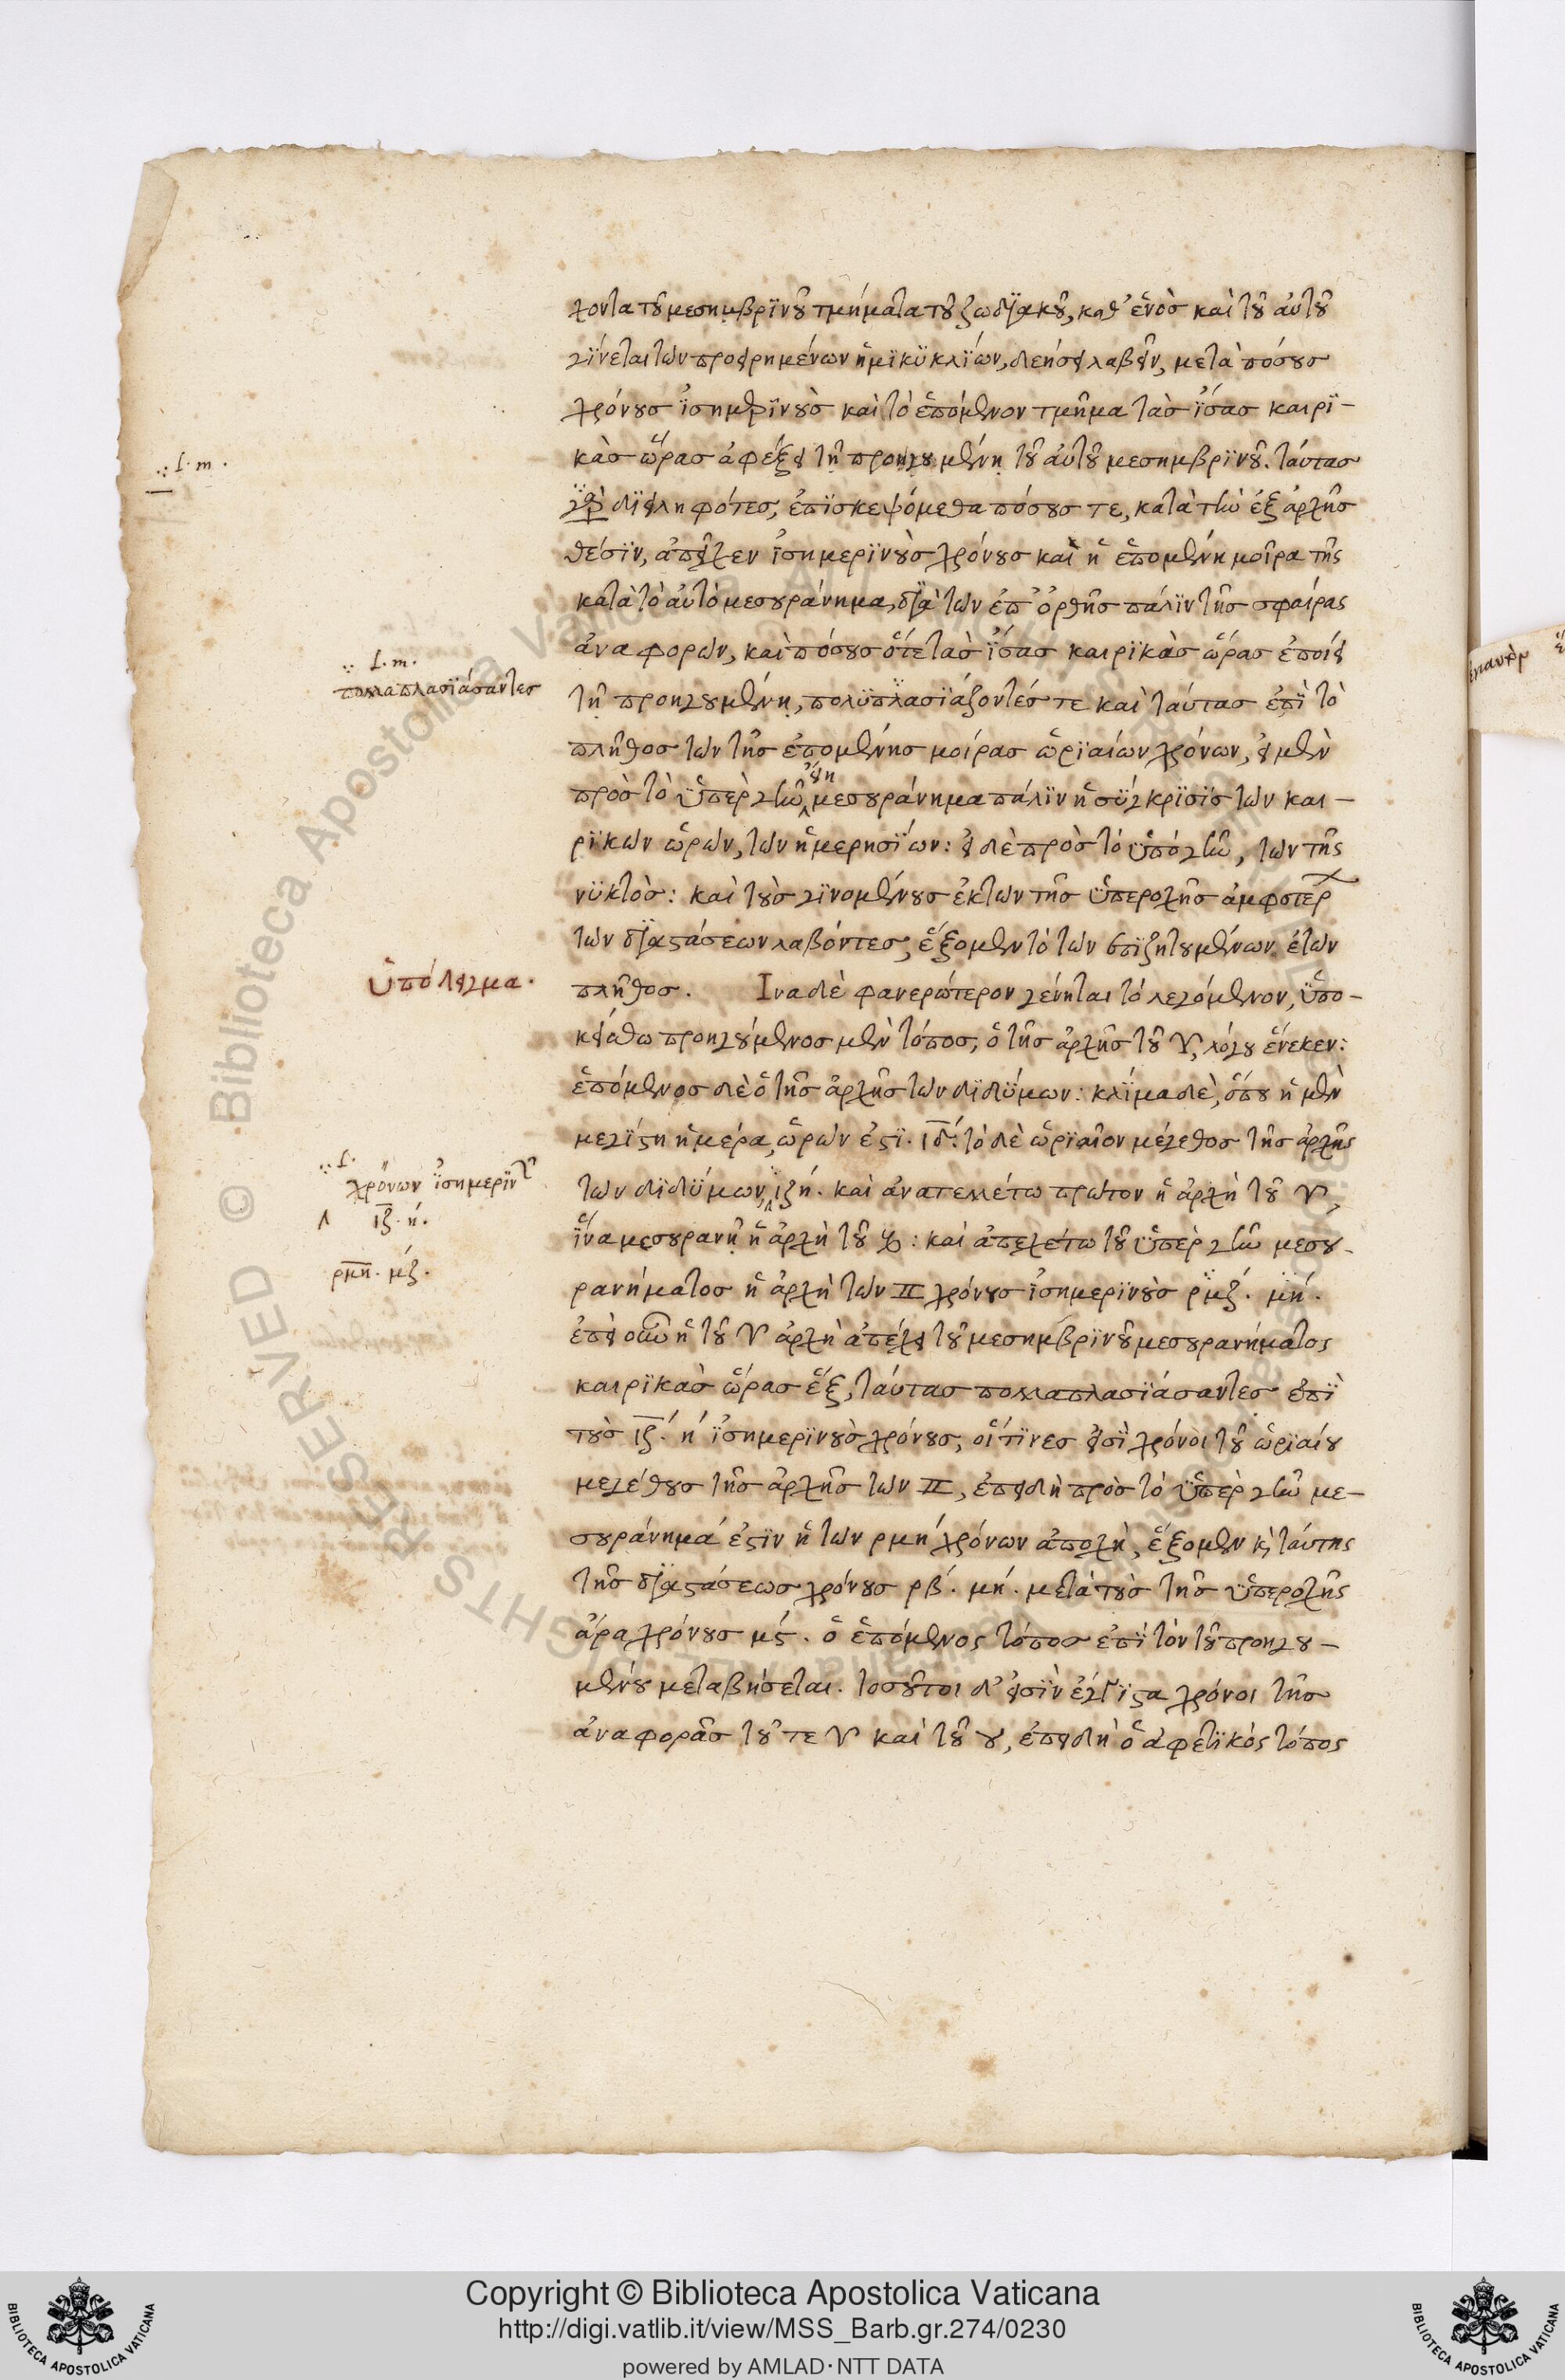 χοντα τοῦ μεσημβρϊνοῦ τμήματα τοῦ ζωδϊακοῦ, καθ᾽ ἑνὸσ καὶ τοῦ ἀυτοῦ
γίνεται τῶν προειρημένων ἡμϊκϋκλΐων, δεήσει λαβεῖν, μετὰ πόσουσ
χρόνουσ ϊ̓σημερϊνοὺσ καὶ τὸ ἑπόμενον τμῆμα τὰσ ΐσασ καιρϊ-
κὰσ ὥρασ ἀφέξει τῆ προηγουμένη τοῦ ἀυτοῦ μεσημβρϊνοῦ. ταύτασ
∴ l. m.
δϊειληφότεσ, ἐπϊσκεψόμεθα πόσουσ τε, κατὰ τὴν ἐξ ἀρχῆσ
θέσϊν, ἀπεῖχεν ϊ̓σημερϊνοὺσ χρόνουσ καὶ ἡ ἑπομένη μοῖρα τῆς
κατὰ τὸ ἀυτὸ μεσουράνημα, δϊὰ τῶν ἐπ᾽ ὀρθῆσ πάλϊν τῆσ σφαίρας
ἀναφορῶν, καὶ πόσουσ ὅτε τὰσ ΐσασ καιρϊκὰσ ὥρασ ἐποίει
∴ l. m.
πολλαπλασϊάσαντεσ
τῆ προηγουμένη, πολϋπλασϊάζοντέσ τε καὶ ταύτασ ἐπῒ τὸ
πλῆθοσ τῶν τῆσ ἑπομένησ μοίρασ ὡρϊαίων χρόνων, εἰ μὲν
πρὸσ τὸ ϋ̔πὲρ γῆν εἴη μεσουράνημα πάλϊν ἡ σύγκρϊσϊσ τῶν και-
ρϊκῶν ὡρῶν, τῶν ἡμερησΐων: εἰ δὲ πρὸσ τὸ ϋ̔πὸ γῆν, τῶν τῆς
νϋκτὸσ: καὶ τοὺσ γϊνομένουσ ἐκ τῶν τῆσ ϋ̔περοχῆσ ἀμφοτέρ
τῶν δϊαστάσεων λαβόντεσ, ἕξομεν τὸ τῶν ἐπϊζητουμένων ἐτῶν
ὑπόδειγμα.
πλῆθοσ. Ινα δὲ φανερώτερον γένηται τὸ λεγόμενον, ϋ̔πο-
κείσθω προηγούμενοσ μὲν τόποσ, ὁ τῆσ ἀρχῆσ τοῦ ♈, λόγου ἕνεκεν:
ἑπόμενοσ δὲ ὁ τῆσ ἀρχῆσ τῶν δϊδΰμων: κλΐμα δὲ, ὅπου ἡ μὲν
μεγίστη ἡμέρα, ὡρῶν ἐστϊ. ιδ. τὸ δὲ ὡρϊαῖον μέγεθοσ τῆσ ἀρχῆς
∴ l.
χρόνων ϊ̓σημερϊν
ιζ. ή.
τῶν δϊδΰμων, ιζή. καὶ ἀνατελλέτω πρῶτον ἡ ἀρχὴ τοῦ ♈,
ΐνα μεσουρανῆ ἡ ἀρχὴ τοῦ ♑: καὶ ἀπεχέτω τοῦ ϋ̔πὲρ γῆν μεσου-
ρμη. μζ.
ρανήματοσ ἡ ἀρχὴ τῶν ♊ χρόνουσ ϊ̓σημερϊνοὺσ ρμζ. μή.
ἐπεὶ οὖν ἡ τοῦ ♈ ἀρχὴ ἀπέχει τοῦ μεσημβρϊνοῦ μεσουρανήματος
καιρϊκὰσ ὥρασ ἕξ, ταύτασ πολλαπλασϊάσαντεσ ἐπῒ
τοὺσ ιζ. ή ϊ̓σημερϊνοὺσ χρόνουσ, οἵτϊνεσ εἰσῒ χρόνοι τοῦ ὡρϊαίου
μεγέθουσ τῆσ ἀρχῆσ τῶν ♊, ἐπειδὴ πρὸσ τὸ ϋ̔πὲρ γῆν με-
σουράνημά ἐστϊν ἡ τῶν ρμή χρόνων ἀποχὴ, ἕξομεν κὶ ταύτης
τῆσ δϊαστάσεωσ χρόνουσ ρβ́. μή. μετὰ τοὺσ τῆσ ϋ̔περοχῆς
ἄρα χρόνουσ μς́. ὁ ἑπόμενος τόποσ ἐπῒ τὸν τοῦ προηγου-
μένου μεταβήσεται. τοσοῦτοι δ᾽ εἰσῒν ἔγγϊστα χρόνοι τῆσ
ἀναφορᾶσ τοῦ τε ♈ καὶ τοῦ ♉, ἐπειδὴ ὁ ἀφετϊκὸς τόπος
Copyright © Biblioteca Apostolica Vaticana
http://digi.vatlib.it/view/MSS_Barb.gr.274/0230
powered by AMLAD·NTT DATA